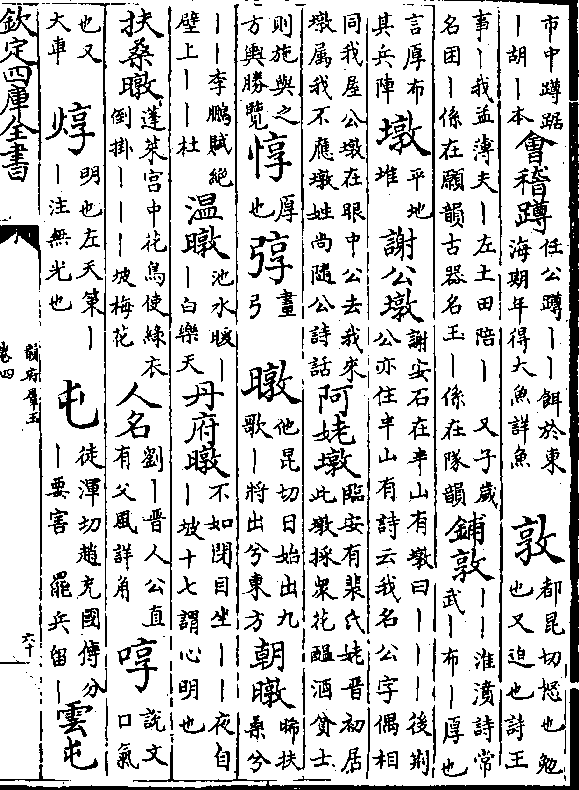 市中蹲踞丨胡丨本會稽蹲任公蹲丨丨丨餌於東海期年得大魚詳魚敦都昆切怒也勉也又迫也詩王
事丨我孟薄夫丨左土田陪丨又子歲名困丨係在願韻古器名王丨係在隊韻鋪敦丨丨淮濆詩常武丨布丨厚也
言厚布其兵陣墩平地堆謝公墩謝安石在半山有墩曰丨丨丨後荆公亦住半山有詩云我名公字偶相
同我屋公墩在眼中公去我來墩屬我不應墩姓尚隨公詩話阿姥墩臨安有裴氏姥晉初居此墩採衆花醖酒貸士
則施與之方輿勝覽惇厚也弴畫弓暾他昆切日始出九歌丨將出兮東方朝暾晞扶桑兮
丨丨李鵬賦絶壁上丨丨杜温暾池水暖丨丨白樂天丹府暾不如閉目坐丨丨夜自丨坡十七謂心明也
扶桑暾蓬萊宫中花鳥使緑衣倒掛丨丨丨坡梅花人名劉丨晉人公直有父風詳角啍說文口氣
也又大車焞明也左天策丨丨注無光也屯徒渾切趙充國傳分丨要害 罷兵留丨雲屯
欽定四庫全書
韻府羣玉
卷四
六十